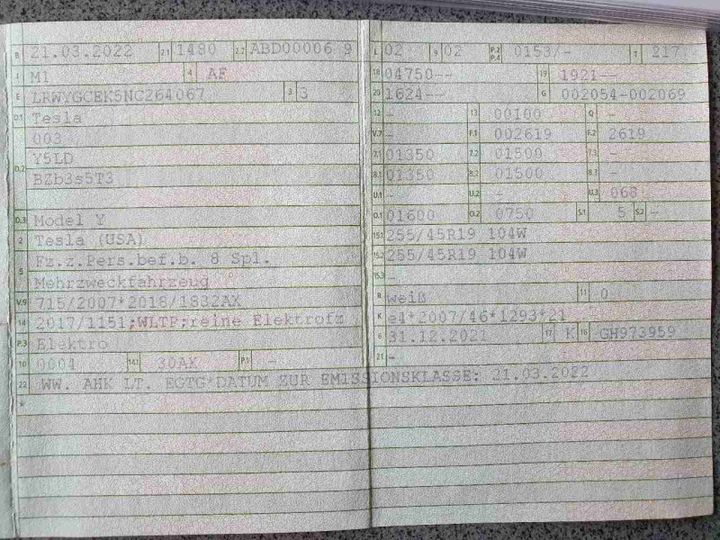 B 21.03.2022 2.1 1480 2.2 ABD00006 9
J M1 4 AF
E LRWYGCEK5NC264067 3 3
D.1 Tesla
003
D.2 Y5LD
BZb3s5T3
D.3 Model Y
2 Tesla (USA)
5 Fz.z.Pers.bef.b. 8 Spl.
Mehrzweckfahrzeug
V.9 715/2007*2018/1832AX
14 2017/1151;WLTP;reine Elektrofz
P.3 Elektro
10 0004 14.1 30AX P.1 -
22 WW. AHK LT. EGTG*DATUM ZUR EMISSIONSKLASSE: 21.03.2022
*
L 02 9 02 P.2 P.4 0153/- T 217
18 04750-- 19 1921--
20 1624-- G 002054-002069
12 - 13 00100 Q -
V.7 - F.1 002619 F.2 2619
7.1 01350 7.2 01500 7.3 -
8.1 01350 8.2 01500 8.3 -
U.1 - U.2 - U.3 068
O.1 01600 O.2 0750 S.1 5 S.2 -
15.1 255/45R19 104W
15.2 255/45R19 104W
15.3 -
R weiß 11 0
K e4*2007/46*1293*21
6 31.12.2021 17 K 16 GH973959
21 -